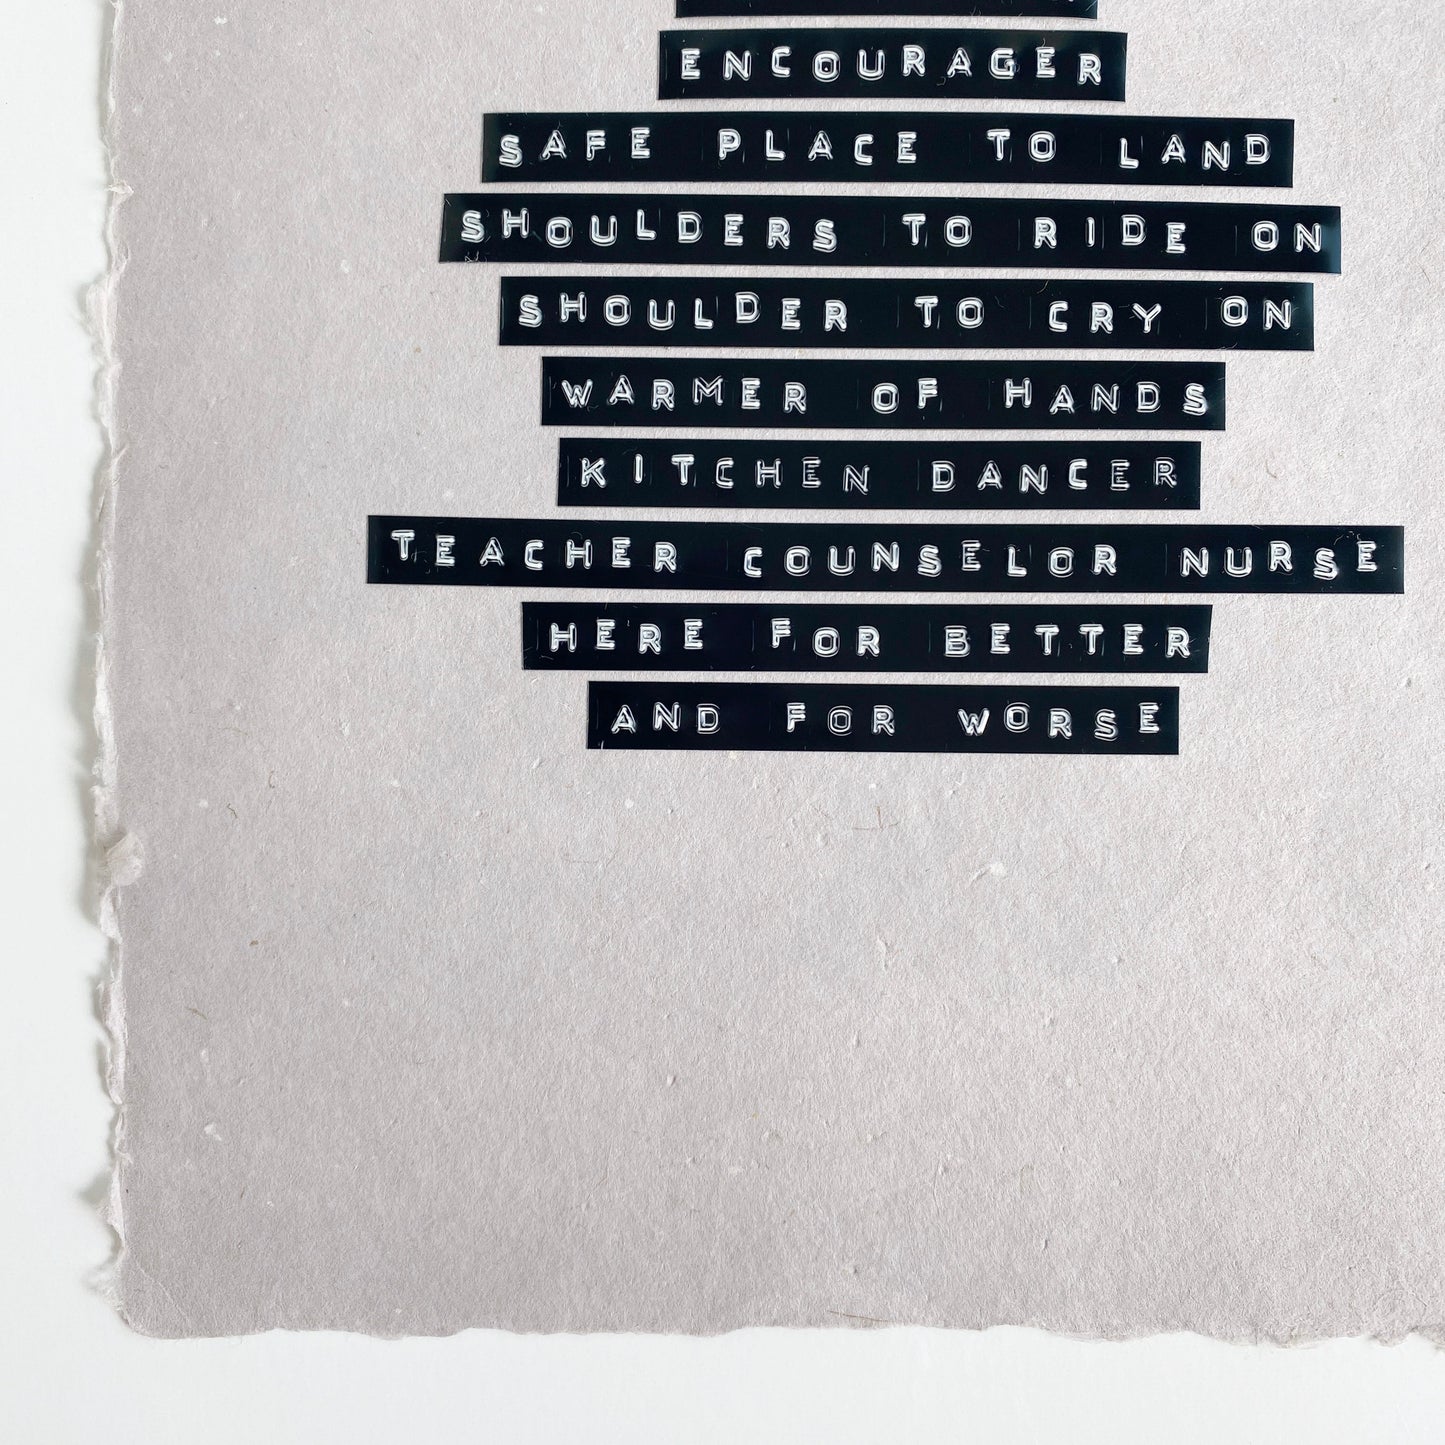 ENCOURAGER
SAFE PLACE TO LAND
SHOULDERS TO RIDE ON
SHOULDER TO CRY ON
WARMER OF HANDS
KITCHEN DANCER
TEACHER COUNSELOR NURSE
HERE FOR BETTER
AND FOR WORSE